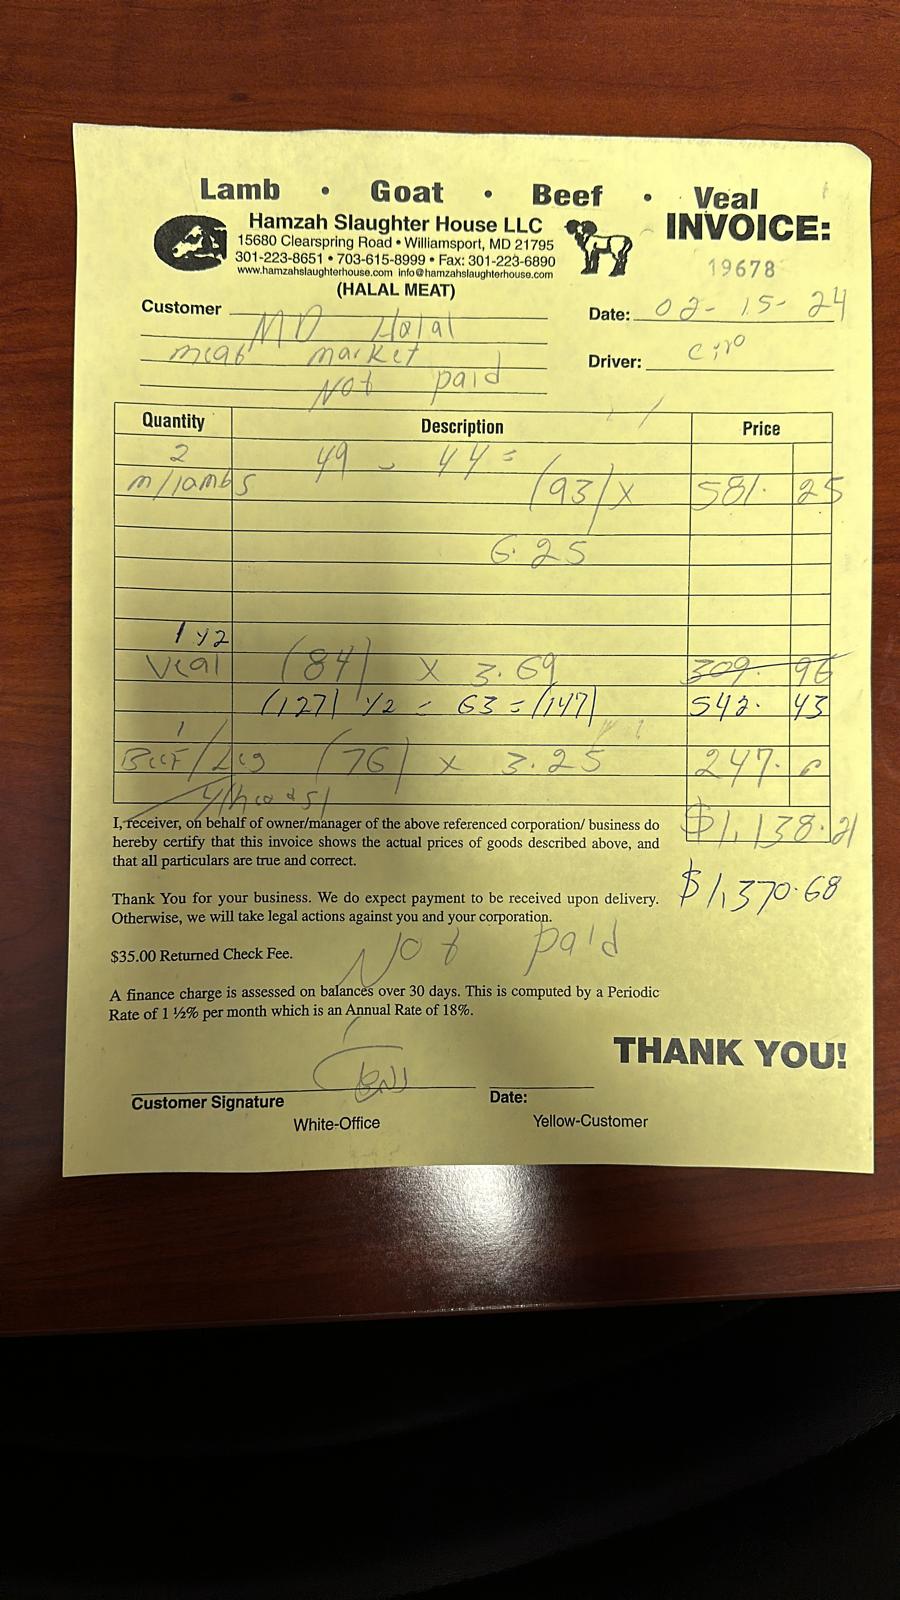 Lamb • Goat • Beef • Veal
Hamzah Slaughter House LLC
15680 Clearspring Road • Williamsport, MD 21795
301-223-8651 • 703-615-8999 • Fax: 301-223-6890
www.hamzahslaughterhouse.com info@hamzahslaughterhouse.com
(HALAL MEAT)
INVOICE:
19678
Customer MD Halal
meat market
Not paid
Date: 02-15-24
Driver:
Quantity Description Price
2 49 - 44 =
m/lambs (93) x 581. 25
6.25
1 1/2
Veal (84) x 3.69 309. 96
(127) 1/2 = 63 = (147) 542. 43
1
Beef/Leg (76) x 3.25 247.
$1,138.21
I, receiver, on behalf of owner/manager of the above referenced corporation/ business do
hereby certify that this invoice shows the actual prices of goods described above, and
that all particulars are true and correct.
$1,370.68
Thank You for your business. We do expect payment to be received upon delivery.
Otherwise, we will take legal actions against you and your corporation.
Not paid
$35.00 Returned Check Fee.
A finance charge is assessed on balances over 30 days. This is computed by a Periodic
Rate of 1 ½% per month which is an Annual Rate of 18%.
THANK YOU!
Customer Signature Date:
White-Office Yellow-Customer